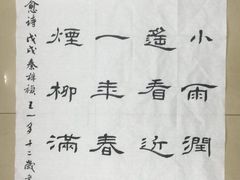 小雨潤
遙看近
一年春
煙柳滿
愈诗 戊戌 王一 十二歲